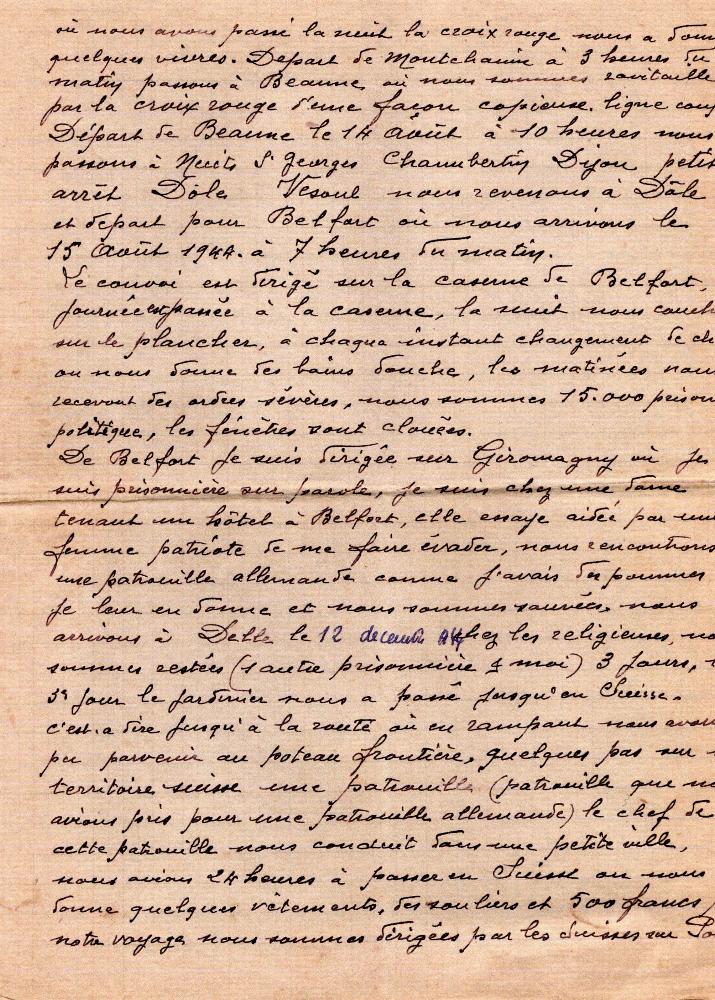 où nous avons passé la nuit la croix rouge nous a donn
quelques vivres. Depart de Montchanin à 3 heures du
matin passons à Beaune où nous sommes ravitaillé
par la croix rouge d'une façon copieuse. ligne coup
Départ de Beaune le 14 Août à 10 heures nous
passons à Nuits St Georges Chambertin Dijon petit
arrêt Dôle Vesoul nous revenons à Dôle
et depart pour Belfort où nous arrivons le
15 Août 1944. à 7 heures du matin.
Le convoi est dirigé sur la caserne de Belfort,
journée est passée à la caserne, la nuit nous couch
sur le plancher, à chaque instant changement de ch
on nous donne des bains douche, les matinées nous
recevont des ordres sévères, nous sommes 15.000 prison
politique, les fenêtres sont clouées.
De Belfort je suis dirigée sur Giromagny où je
suis prisonnière sur parole, je suis chez une dame
tenant un hôtel à Belfort, elle essaye aidée par une
femme patriote de me faire évader, nous rencontrons
une patrouille allemande comme j'avais des pommes
je leur en donne et nous sommes sauvées. nous
arrivons à Delle le 12 decembre 44 chez les religieuses, no
sommes restées (1 autre prisonnière & moi) 3 jours,
3e jour le jardinier nous a passé jusqu'en Suisse.
c'est. a dire jusqu'à la route où en rampant nous avons
pu parvenir au poteau frontière, quelques pas sur
territoire suisse une patrouille (patrouille que n
avions pris pour une patrouille allemande) le chef de
cette patrouille nous conduit dans une petite ville,
nous avions 24 heures à passer en Suisse on nous
donne quelques vêtements, des souliers et 500 francs p
notre voyage nous sommes dirigées par les Suisses sur